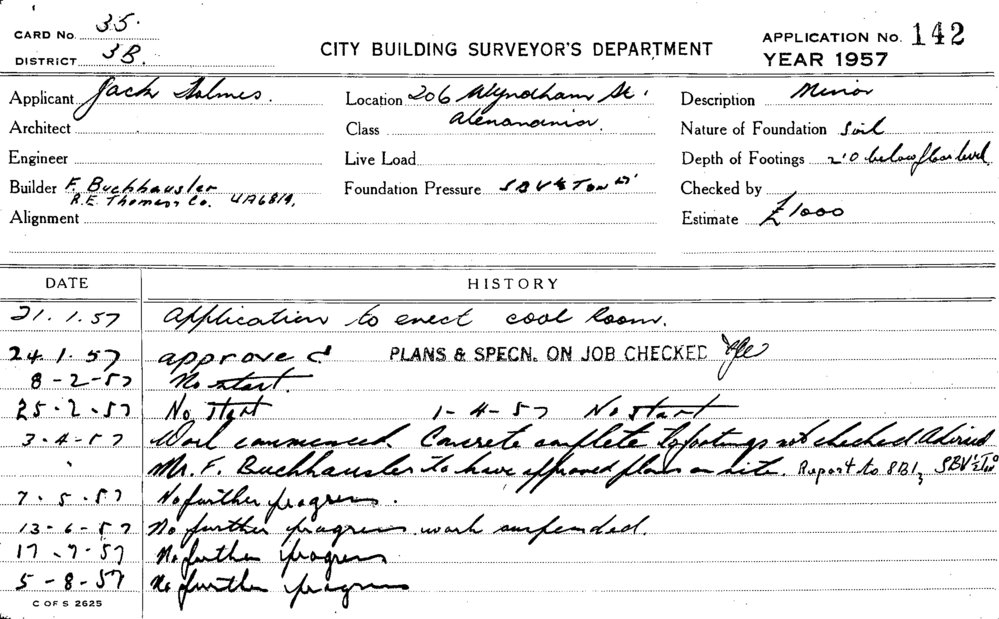 CARD No. 35.
DISTRICT 3B.
CITY BUILDING SURVEYOR'S DEPARTMENT
APPLICATION No. 142
YEAR 1957
Applicant Jack Holmes.
Location 206 Wyndham St.
Alexandria.
Description Minor
Architect
Class
Nature of Foundation Soil
Engineer
Live Load
Depth of Footings 2'0 below floor level
Builder F. Buchhausler
R.E. Thomas & Co. UA6819.
Foundation Pressure SBV
Checked by
Alignment
Estimate £1000
DATE
HISTORY
21.1.57 Application to erect cool room.
24.1.57 approved PLANS & SPECN. ON JOB CHECKED
8-2-57 No start.
25.2.57 No start 1-4-57 No start
3-4-57 Work commenced. Concrete complete to footings not checked. Advised
Mr. F. Buchhausler to have approved plans on site. Report to SBI,
7.5.57 No further progress.
13-6-57 No further progress work suspended.
17.7.57 No further progress
5-8-57 No further progress
C OF S 2625